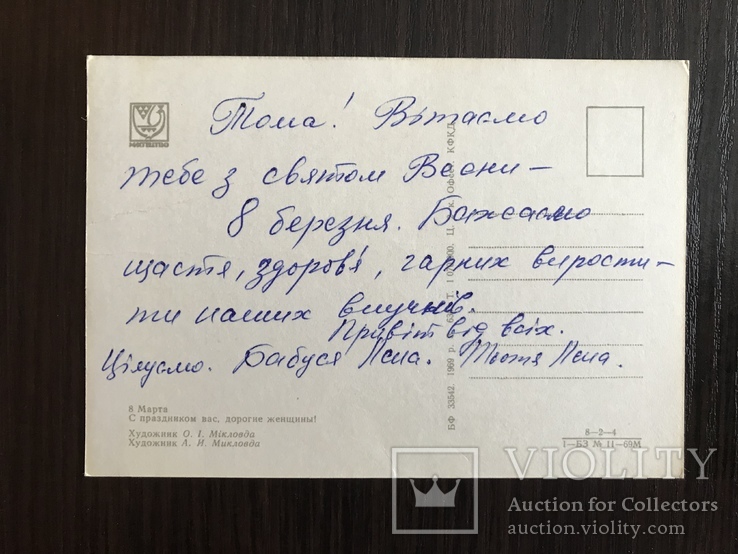 МИСТЕЦТВО
Тома! Вітаємо
тебе з святом Весни —
8 березня. Бажаємо
щастя, здоров'я, гарних вирости-
ти наших внучнів.
Привіт від всіх.
Цілуємо. Бабуся Лєна. Тьотя Лєна.
8 Марта
С праздником вас, дорогие женщины!
Художник О. І. Мікловда
Художник А. И. Микловда
БФ 33542. 1969 р.
Офсет. КФКД
8—2—4
1—БЗ № 11—69М
VIOLITY
Auction for Collectors
auction.violity.com